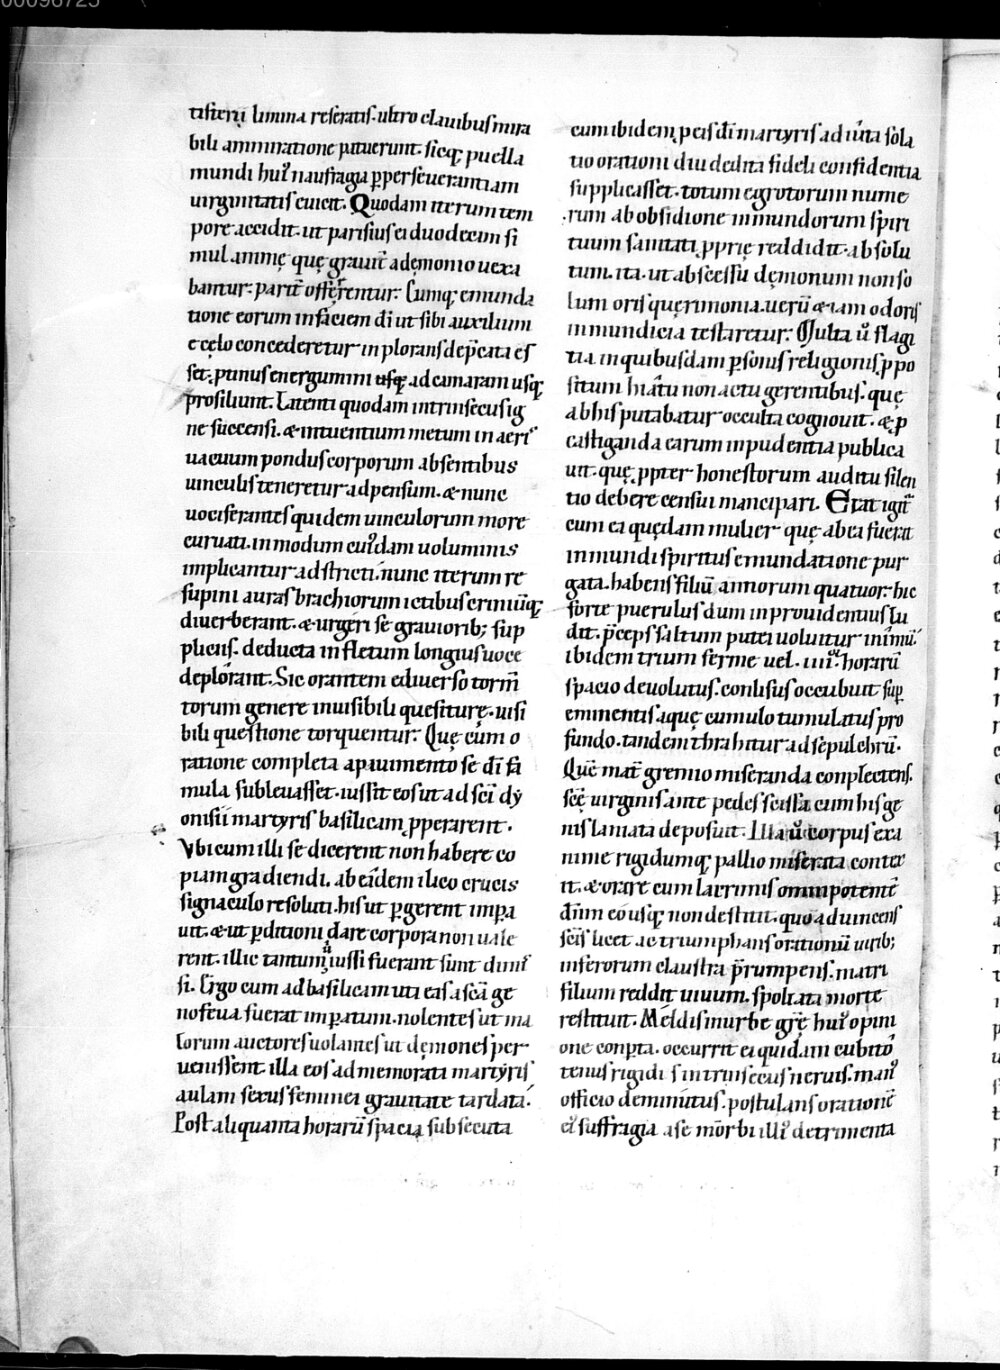 00096725
tisterij limina reseratis. ultro clauibus mira
bili ammiratione patuerunt. sicq; puella
mundi hui᷒ naufragia p̱perseuerantiam
uirginitatis euicit. Quodam iterum tem
pore accidit. ut parisius ei duodecim si
mul animę quę grauit̄ a demonio uexa
bantur. parit̄ offerrentur. Cumq; emunda
tione eorum in faciem dī ut sibi auxilium
e cęlo concederetur inplorans dep̄cata es
set. p̱tinus energumini usq; ad camaram usq;
prosiliunt. Latenti quodam intrinsecus ig
ne succensi. & intuentium metum in aeris
uacuum pondus corporum absentibus
uinculis teneretur adpensum. & nunc
uociferantes quidem uinculorum more
curuati. in modum cui᷒dam uoluminis
implicantur adstricti. nunc iterum re
supini auras brachiorum ictibus criniūq;
diuerberant. & urgeri se grauiorib; sup
pliciis. deducta in fletum longius uoce
deplorant. Sic orantem e diuerso torm̄
torum genere inuisibili quesiturę. uisi
bili quęstione torquentur. Quę cum o
ratione completa a pauimento se dī fa
mula subleuasset. iussit eos ut ad scī dy
onisii martyris basilicam p̱perarent.
Vbi cum illi se dicerent non habere co
piam gradiendi. ab eādem ilico crucis
signaculo resoluti. his ut p̱gerent impa
uit. & ut p̱ditioni dare corpora non uale
rent. illic tantum ū iussi fuerant sunt dimis
si. Ergo cum ad basilicam uti eas a scā ge
nofeua fuerat imp̱atum. nolentes ut ma
lorum auctores uolantes ut dęmones per
uenissent. illa eos ad memorati martyris
aulam sexus feminei grauitate tardata.
Post aliquanta horarū spacia subsecuta
cum ibidem p̱ eis dī martyris adiūta sola
tio orationi diu dedita fideli confidentia
supplicasset. totum egrotorum nume
rum ab obsidione inmundorum spiri
tuum sanitati p̱prię reddidit. absolu
tum. ita. ut abscessu dęmonum non so
lum oris quęrimonia. uerū & iam odoris
inmundicia testaretur. Multa ū flagi
tia in quibusdam p̱sonis religionis p̱po
situm hiatu non actu gerentibus. quę
ab his putabatur occulta cognouit. & p̱
castiganda earum inpudentia publica
uit. quę p̱pter honestorum auditu silen
tio debere censui mancipari. Erat igit̄
cum ea quędam mulier quę ab ea fuerat
inmundi spiritus emundatione pur
gata. habens filiū annorum quatuor. hic
forte puerulus dum inprouidentius lu
dit. p̄ceps saltum putei uoluitur in imū.
ibidem trium ferme uel. iiii. horarū
spacio deuolutus. conlisus occubuit sup̱
eminentis aquę cumulo tumulatus pro
fundo. tandem thrahitur ad sepulchrū.
Quē mat̄ gremio miseranda conplectens.
scē uirginis ante pedes scissa cum his ge
nis laniata deposuit. Illa ū corpus exa
nime rigidumq; pallio miserata contex
it. & orare cum lacrimis omnipotentē
dn̄m eousq; non destitit. quoad uincens
scīs licet ac triumphans orationū uirib;
inferorum claustra p̄rumpens. matri
filium reddit uiuum. spoliata morte
restituit. Meldis in urbe grę hui᷒ opini
one conp̱ta. occurrit ei quidam cubito
tenus rigidis intrinsecus neruis. man᷒
officio deminutus. postulans orationē
ei᷒ suffragia a se morbi illi᷒ detrimenta